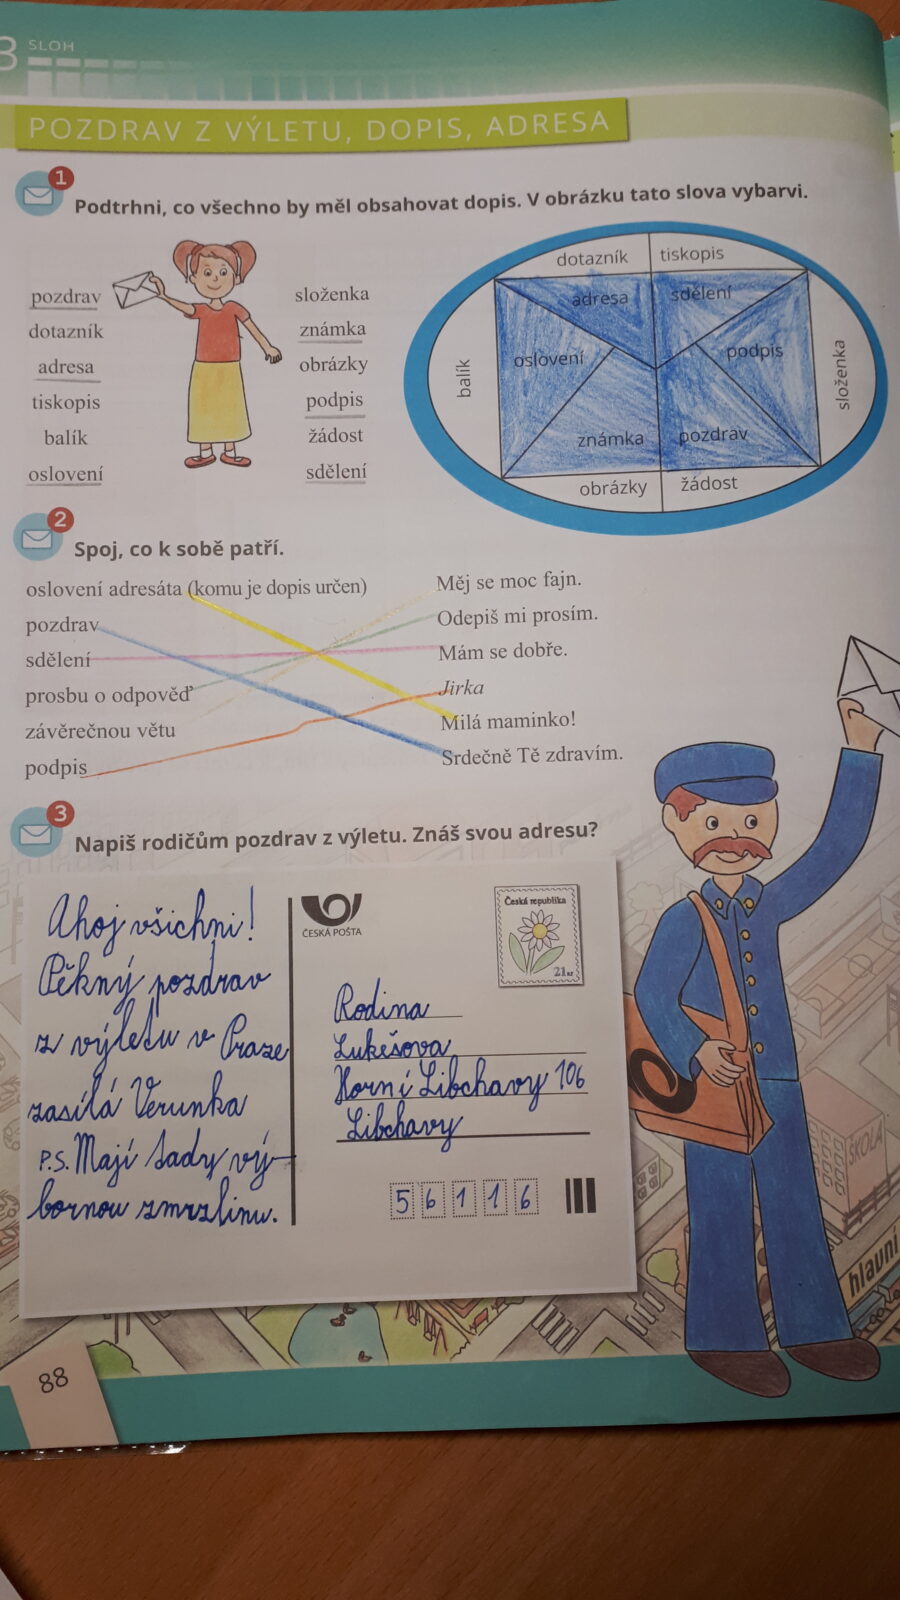 3 SLOH
POZDRAV Z VÝLETU, DOPIS, ADRESA
1
Podtrhni, co všechno by měl obsahovat dopis. V obrázku tato slova vybarvi.
pozdrav
dotazník
adresa
tiskopis
balík
oslovení
složenka
známka
obrázky
podpis
žádost
sdělení
dotazník
tiskopis
adresa
sdělení
balík
oslovení
podpis
složenka
známka
pozdrav
obrázky
žádost
2
Spoj, co k sobě patří.
oslovení adresáta (komu je dopis určen)
pozdrav
sdělení
prosbu o odpověď
závěrečnou větu
podpis
Měj se moc fajn.
Odepiš mi prosím.
Mám se dobře.
Jirka
Milá maminko!
Srdečně Tě zdravím.
3
Napiš rodičům pozdrav z výletu. Znáš svou adresu?
Ahoj všichni!
Pěkný pozdrav
z výletu v Praze
zasílá Verunka
P.S. Mají tady vý-
bornou zmrzlinu.
ČESKÁ POŠTA
Česká republika
21 Kč
Rodina
Lukešova
Horní Libchavy 106
Libchavy
5 6 1 1 6
ŠKOLA
hlavní
88